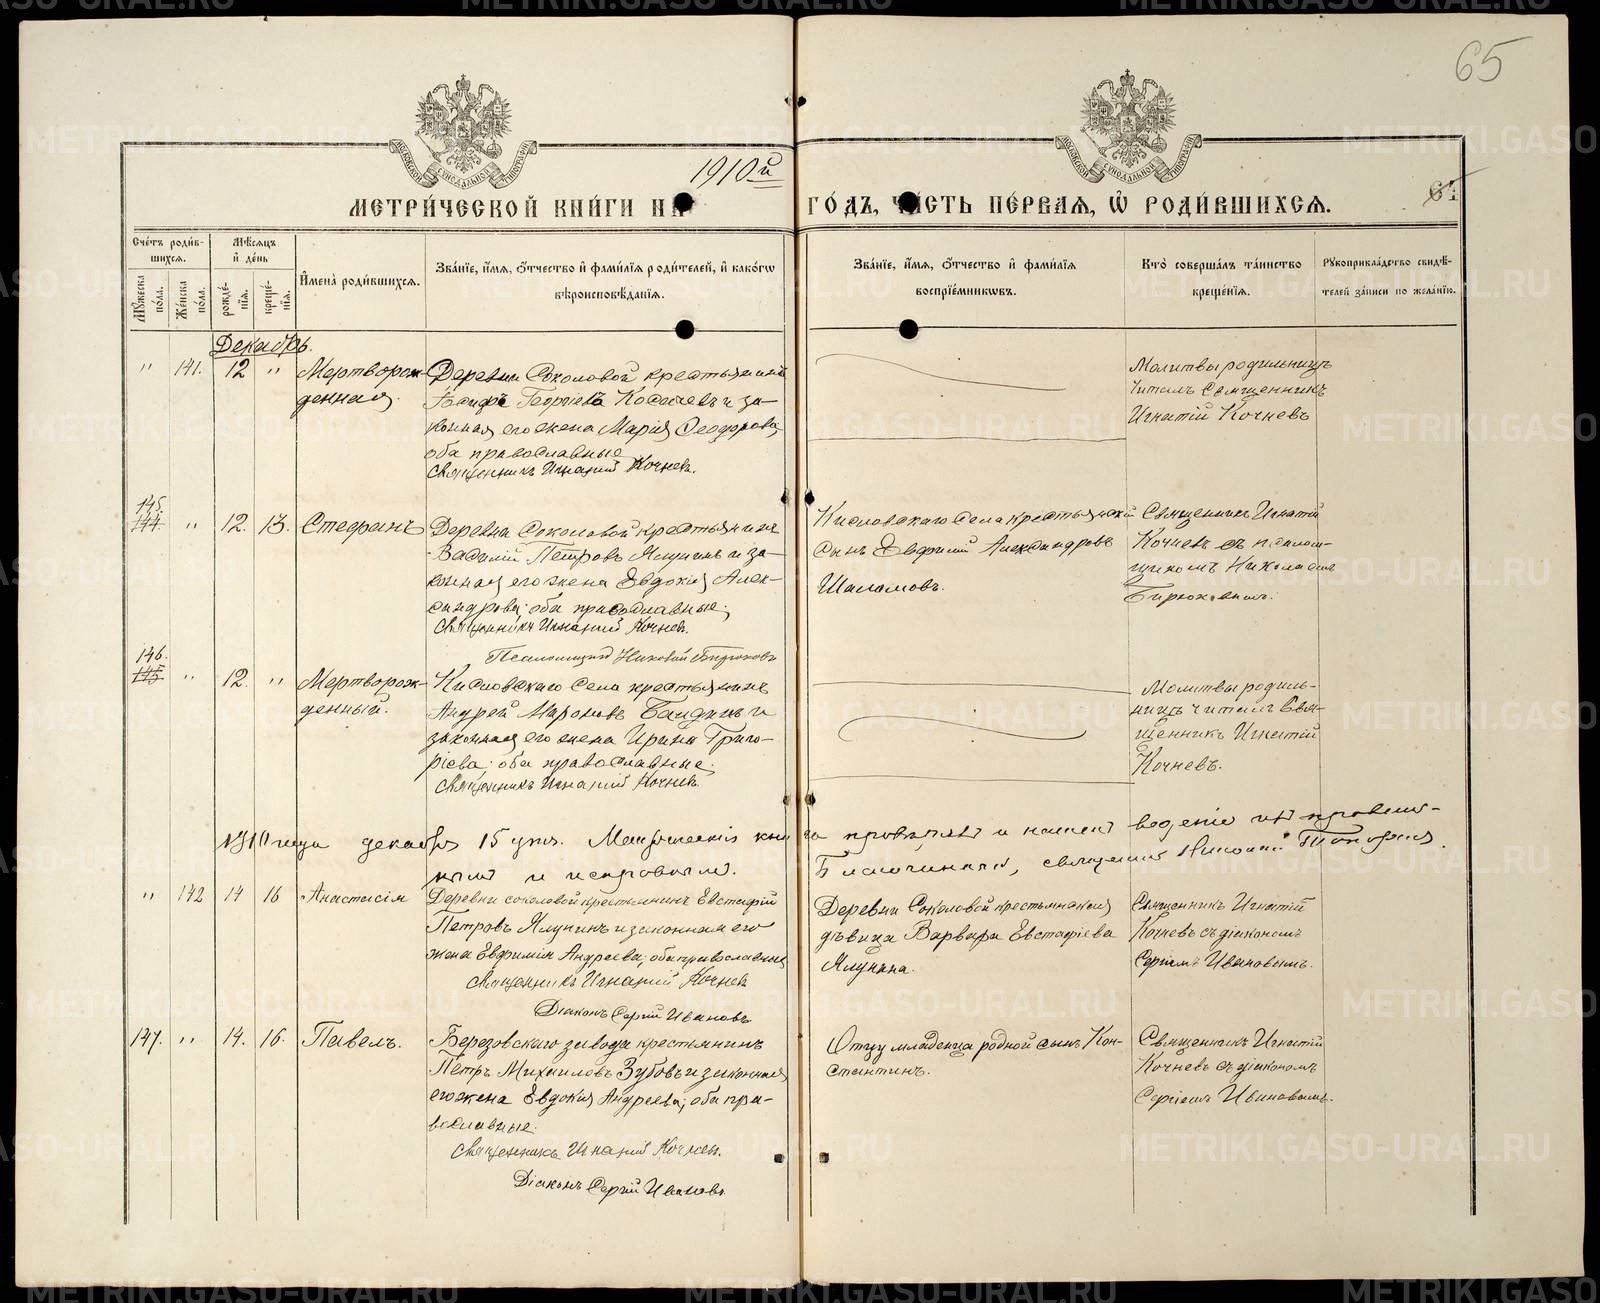 65
1910й
МЕТРИ́ЧЕСКОЙ КНИ́ГИ НА
ГО́ДЪ, ЧА́СТЬ ПЕ́РВАЯ, Ѡ РОДИ́ВШИХСЯ.
64
Сче́тъ роди́в-
шихся.
Мѣ́сяцъ
и҆ де́нь
Му́жеска
по́ла.
Же́нска
по́ла.
рожде́-
нїя.
креще́-
нїя.
И҆мена̀ роди́вшихся.
Зва́нїе, и҆́мя, ѻ҆́тчество и҆ фами́лїя роди́телей, и҆ како́гѡ
вѣроисповѣ́данїя.
Зва́нїе, и҆́мя, ѻ҆́тчество и҆ фами́лїя
воспрїе́мниковъ.
Кто̀ соверша́лъ та́инство
креще́нїя.
Рукоприкла́дство свидѣ́-
телей за́писи по жела́нїю.
Декабрь.
" 141. 12 " Мертворож-
денная.
Деревни Соколовой крестьянинъ
Іосифъ Георгіевъ Косачевъ и за-
конная его жена Марія Ѳеодорова,
оба православные
Священникъ Игнатій Кочневъ.
Молитвы родильницѣ
читалъ Священникъ
Игнатій Кочневъ
145.
144 " 12. 13. Стефанъ
Деревни Соколовой крестьянинъ
Василій Петровъ Ялунинъ и за-
конная его жена Евдокія Алек-
сандрова; оба православные;
Священникъ Игнатій Кочневъ.
Псаломщикъ Николай Бирюковъ
Кисловскаго Села крестьянскій
сынъ Евфимій Александровъ
Шаламовъ.
Священникъ Игнатій
Кочневъ съ псалом-
щикомъ Николаемъ
Бирюковымъ.
146.
145 " 12. " Мертворож-
денный.
Кисловскаго Села крестьянинъ
Андрей Мароновъ Бандинъ и
законная его жена Ирина Григо-
рьева; оба православные.
Священникъ Игнатій Кочневъ
Молитвы родиль-
ницѣ читалъ Свя-
щенникъ Игнатій
Кочневъ.
1910 года декабря 15 дня. Метрическія кни
га провѣрялъ и нашелъ веденіе ихъ правиль-
нымъ и исправнымъ.
Благочинный, священникъ Николай Топорковъ.
" 142 14 16 Анастасія
Деревни Соколовой крестьянинъ Евстафій
Петровъ Ялунинъ и законная его
жена Евфимія Андреева; оба православные
Священникъ Игнатій Кочневъ
Діаконъ Сергій Ивановъ.
Деревни Соколовой крестьянская
дѣвица Варвара Евстафіева
Ялунина.
Священникъ Игнатій
Кочневъ съ діакономъ
Сергіемъ Ивановымъ.
147. " 14. 16. Павелъ.
Березовскаго завода крестьянинъ
Петръ Михаиловъ Зубовъ и законная
его жена Евдокія Андреева; оба пра-
вославные.
Священникъ Игнатій Кочнев.
Діаконъ Сергій Ивановъ.
Отцу младенца родной сынъ Кон-
стантинъ.
Священникъ Игнатій
Кочневъ съ діакономъ
Сергіемъ Ивановымъ.